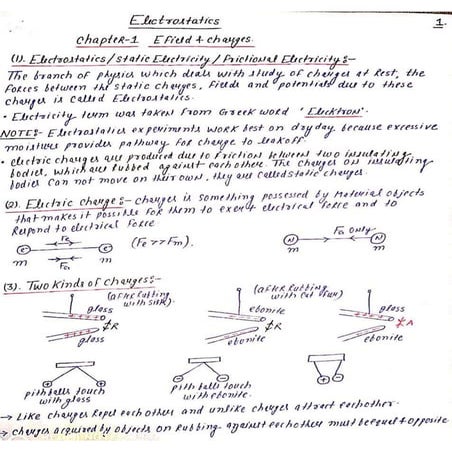 Electrostatics
1.
Chapter-1 E field & charges.
(1). Electrostatics / static Electricity / Frictional Electricity:-
The branch of physics which deals with study of charges at Rest, the
Forces between the static charges, fields and potentials due to these
charges is called Electrostatics.
• Electricity term was taken from Greek word 'Elecktron'.
NOTE:- Electrostatics experiments work best on dry day because excessive
moisture provides pathway for charge to leak off.
• electric charges are produced due to friction between two insulating
bodies, which are rubbed against each other. The charges on insulating
bodies can not move on their own, they are called static charges.
(2). Electric charge:- charge is something possessed by material objects
that makes it possible for them to exert electrical force and to
Respond to electrical force
Fe (Fe >> Fm). FG only
e e N N
m m m m
(3). Two Kinds of charges:-
(after rubbing with silk). (after rubbing with cat fur)
glass ebonite glass
R R A
glass ebonite ebonite
pith balls touch pith balls touch
with glass with ebonite
→ Like charges Repel each other and unlike charges attract each other.
→ charges acquired by objects on Rubbing against each other must be equal & opposite